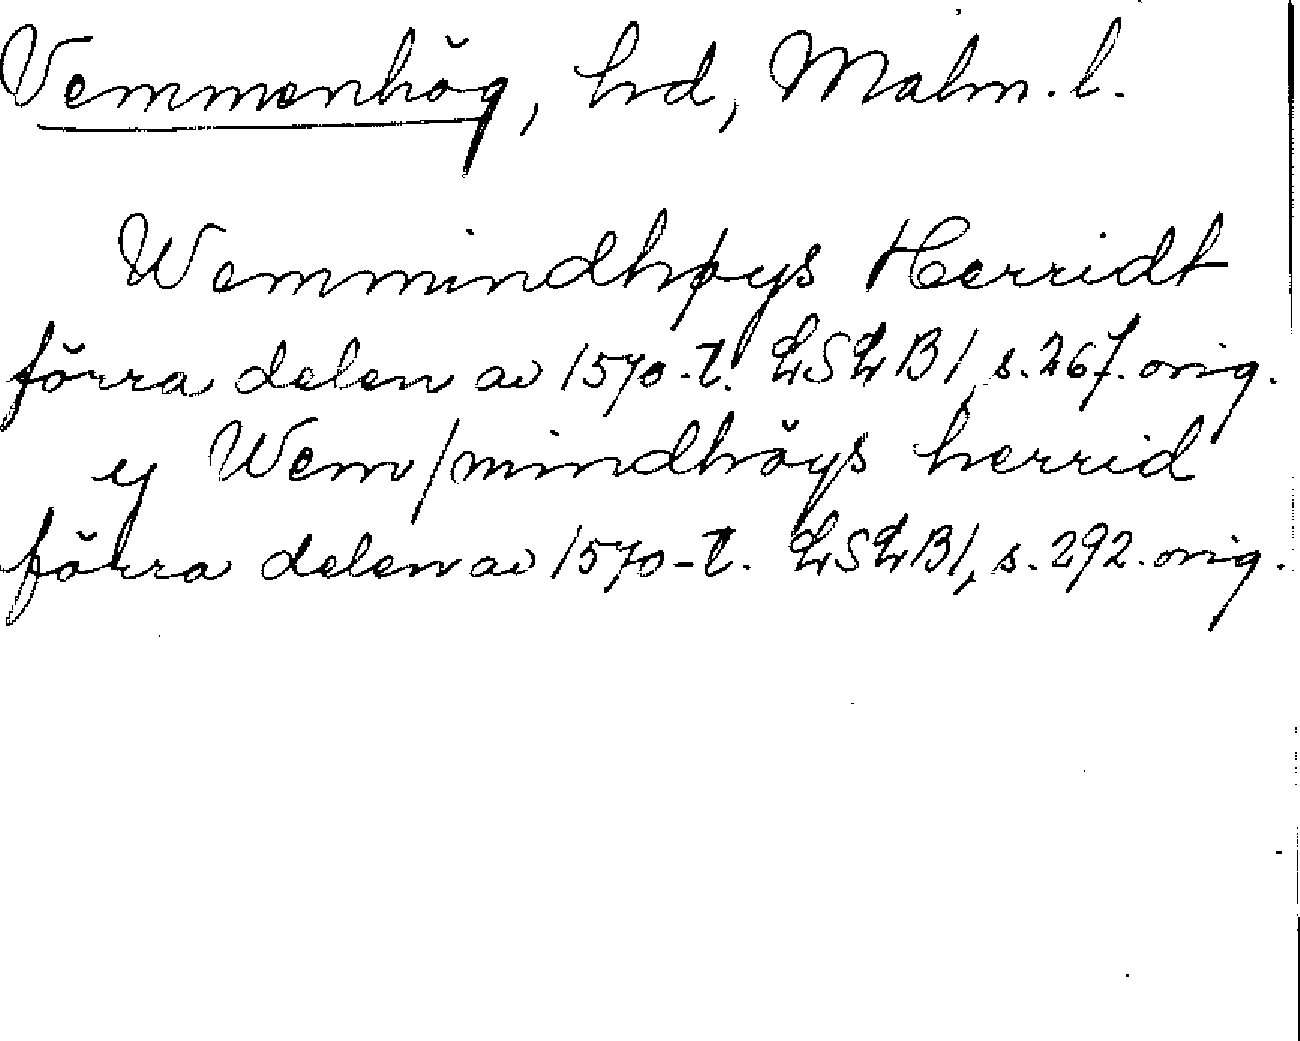 Vemmenhög, hd, Malm. l.
Wemmindhøys Herridt
förra delen av 1570-t. LSLB1, s. 267. orig.
y Wem/mindhöys herrid
förra delen av 1570-t. LSLB1, s. 292. orig.